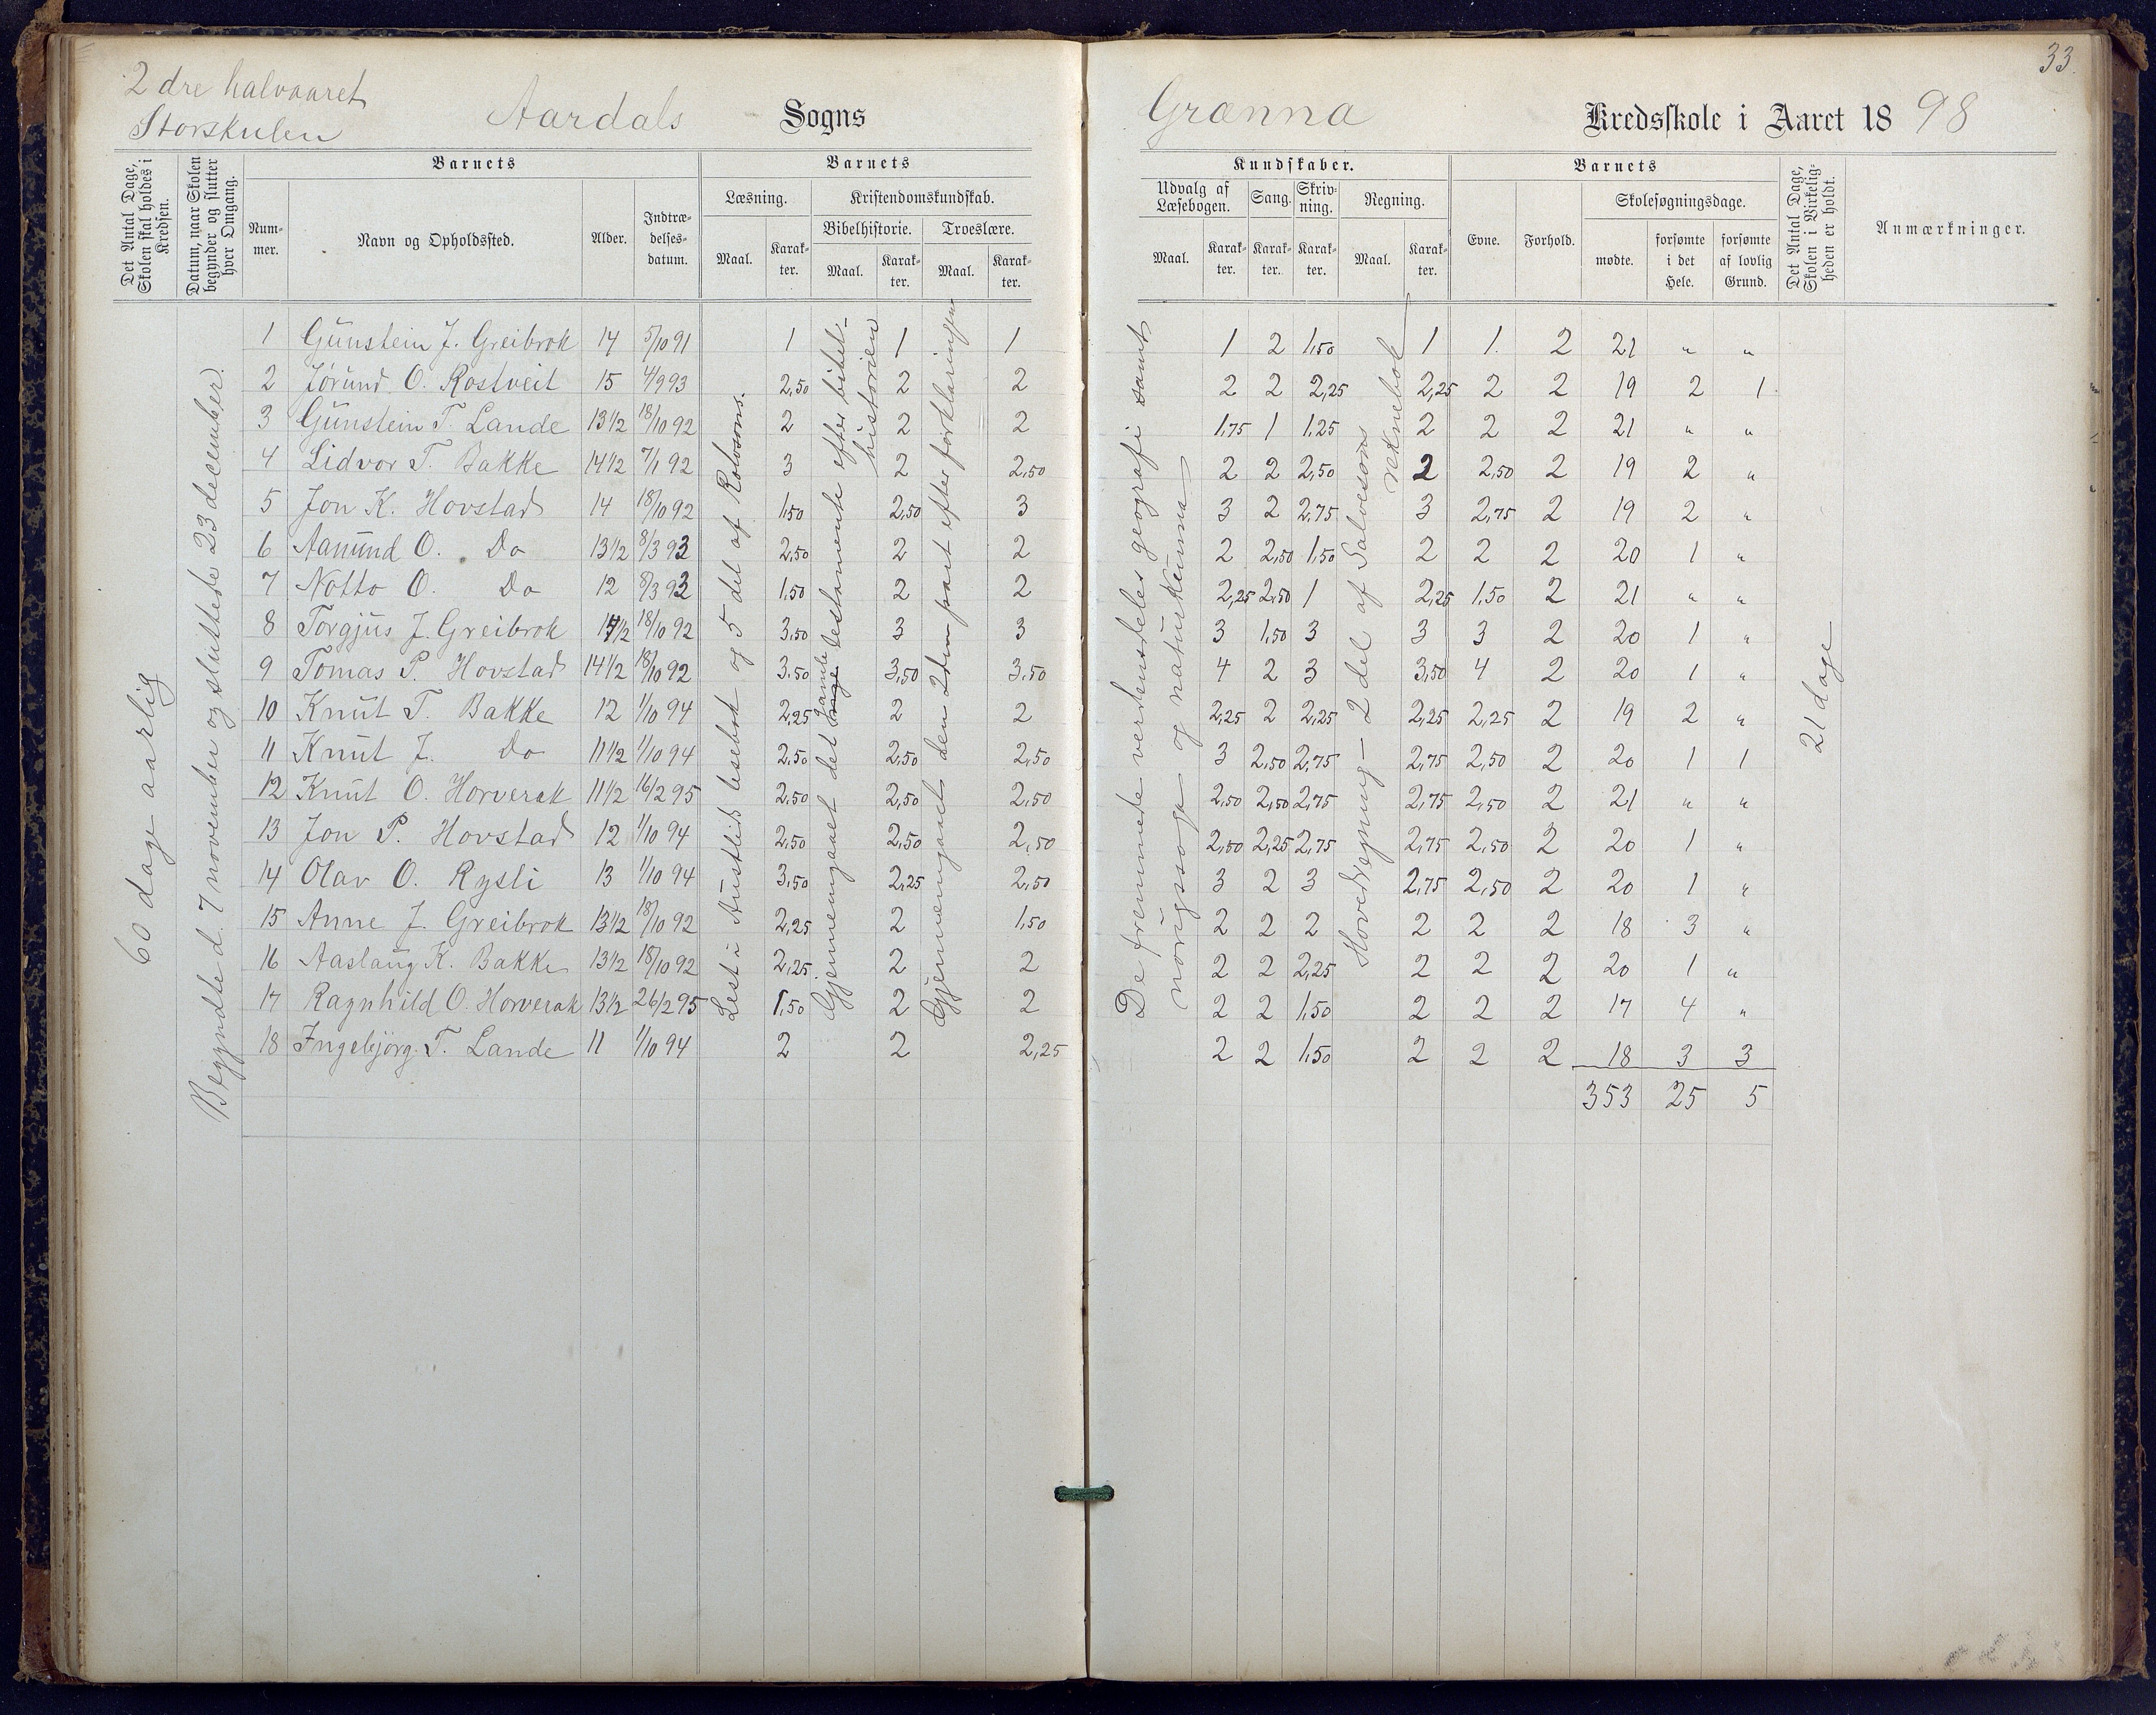 33.
2 dre halvaaret
Storskulen
Aardals Sogns
Grænna Kredsskole i Aaret 1898
Det Antal Dage, Skolen skal holdes i Kredsen.
Datum, naar Skolen begynder og slutter hver Omgang.
Barnets
Nummer.
Navn og Opholdssted.
Alder.
Indtrædelsesdatum.
Barnets
Læsning.
Maal.
Karakter.
Kristendomskundskab.
Bibelhistorie.
Maal.
Karakter.
Troeslære.
Maal.
Karakter.
Kundskaber.
Udvalg af Læsebogen.
Maal.
Karakter.
Sang.
Karakter.
Skrivning.
Karakter.
Regning.
Maal.
Karakter.
Barnets
Evne.
Forhold.
Skolesøgningsdage.
mødte.
forsømte i det Hele.
forsømte af lovlig Grund.
Det Antal Dage, Skolen i Virkeligheden er holdt.
Anmærkninger.
60 dage aarlig
Begyndte d. 7 november og sluttede 23 december.
Lest i Austlids lesebok og 5 del af Rolvsons.
Gjennemgaaet det gamle testamente efter bibelhistorien
Gjennemgaaet den 2den part efter forklaringen
De fremmede verdensdeles geografi samt norigssoga og naturkunna
Hovedregning - 2 del af Salvesons reknebok
21 dage
1 Gunstein J. Greibrok 14 5/10 91 1 1 1 1 2 1,50 1 1. 2 21 " "
2 Jørund O. Rostveit 15 4/9 93 2,50 2 2 2 2 2,25 2,25 2 2 19 2 1
3 Gunstein T. Lande 13 1/2 18/10 92 2 2 2 1,75 1 1,25 2 2 2 21 " "
4 Lidvor T. Bakke 14 1/2 7/1 92 3 2 2,50 2 2 2,50 2 2,50 2 19 2 "
5 Jon K. Hovstad 14 18/10 92 1,50 2,50 3 3 2 2,75 3 2,75 2 19 2 "
6 Aanund O. Do 13 1/2 8/3 93 2,50 2 2 2 2,50 1,50 2 2 2 20 1 "
7 Notto O. Do 12 8/3 93 1,50 2 2 2,25 2,50 1 2,25 1,50 2 21 " "
8 Torgjus J. Greibrok 1/2 18/10 92 3,50 3 3 3 1,50 3 3 3 2 20 1 "
9 Tomas P. Hovstad 14 1/2 18/10 92 3,50 3,50 3,50 4 2 3 3,50 4 2 20 1 "
10 Knut T. Bakke 12 1/10 94 2,25 2 2 2,25 2 2,25 2,25 2,25 2 19 2 "
11 Knut J. Do 11 1/2 1/10 94 2,50 2,50 2,50 3 2,50 2,75 2,75 2,50 2 20 1 1
12 Knut O. Horverak 11 1/2 16/2 95 2,50 2,50 2,50 2,50 2,50 2,75 2,75 2,50 2 21 " "
13 Jon P. Hovstad 12 1/10 94 2,50 2,50 2,50 2,50 2,25 2,75 2,75 2,50 2 20 1 "
14 Olav O. Rysli 13 1/10 94 3,50 2,25 2,50 3 2 3 2,75 2,50 2 20 1 "
15 Anne J. Greibrok 13 1/2 18/10 92 2,25 2 1,50 2 2 2 2 2 2 18 3 "
16 Aaslaug K. Bakke 13 1/2 18/10 92 2,25 2 2 2 2 2,25 2 2 2 20 1 "
17 Ragnhild O. Horverak 13 1/2 26/2 95 1,50 2 2 2 2 1,50 2 2 2 17 4 "
18 Ingebjörg T. Lande 11 1/10 94 2 2 2,25 2 2 1,50 2 2 2 18 3 3
353 25 5